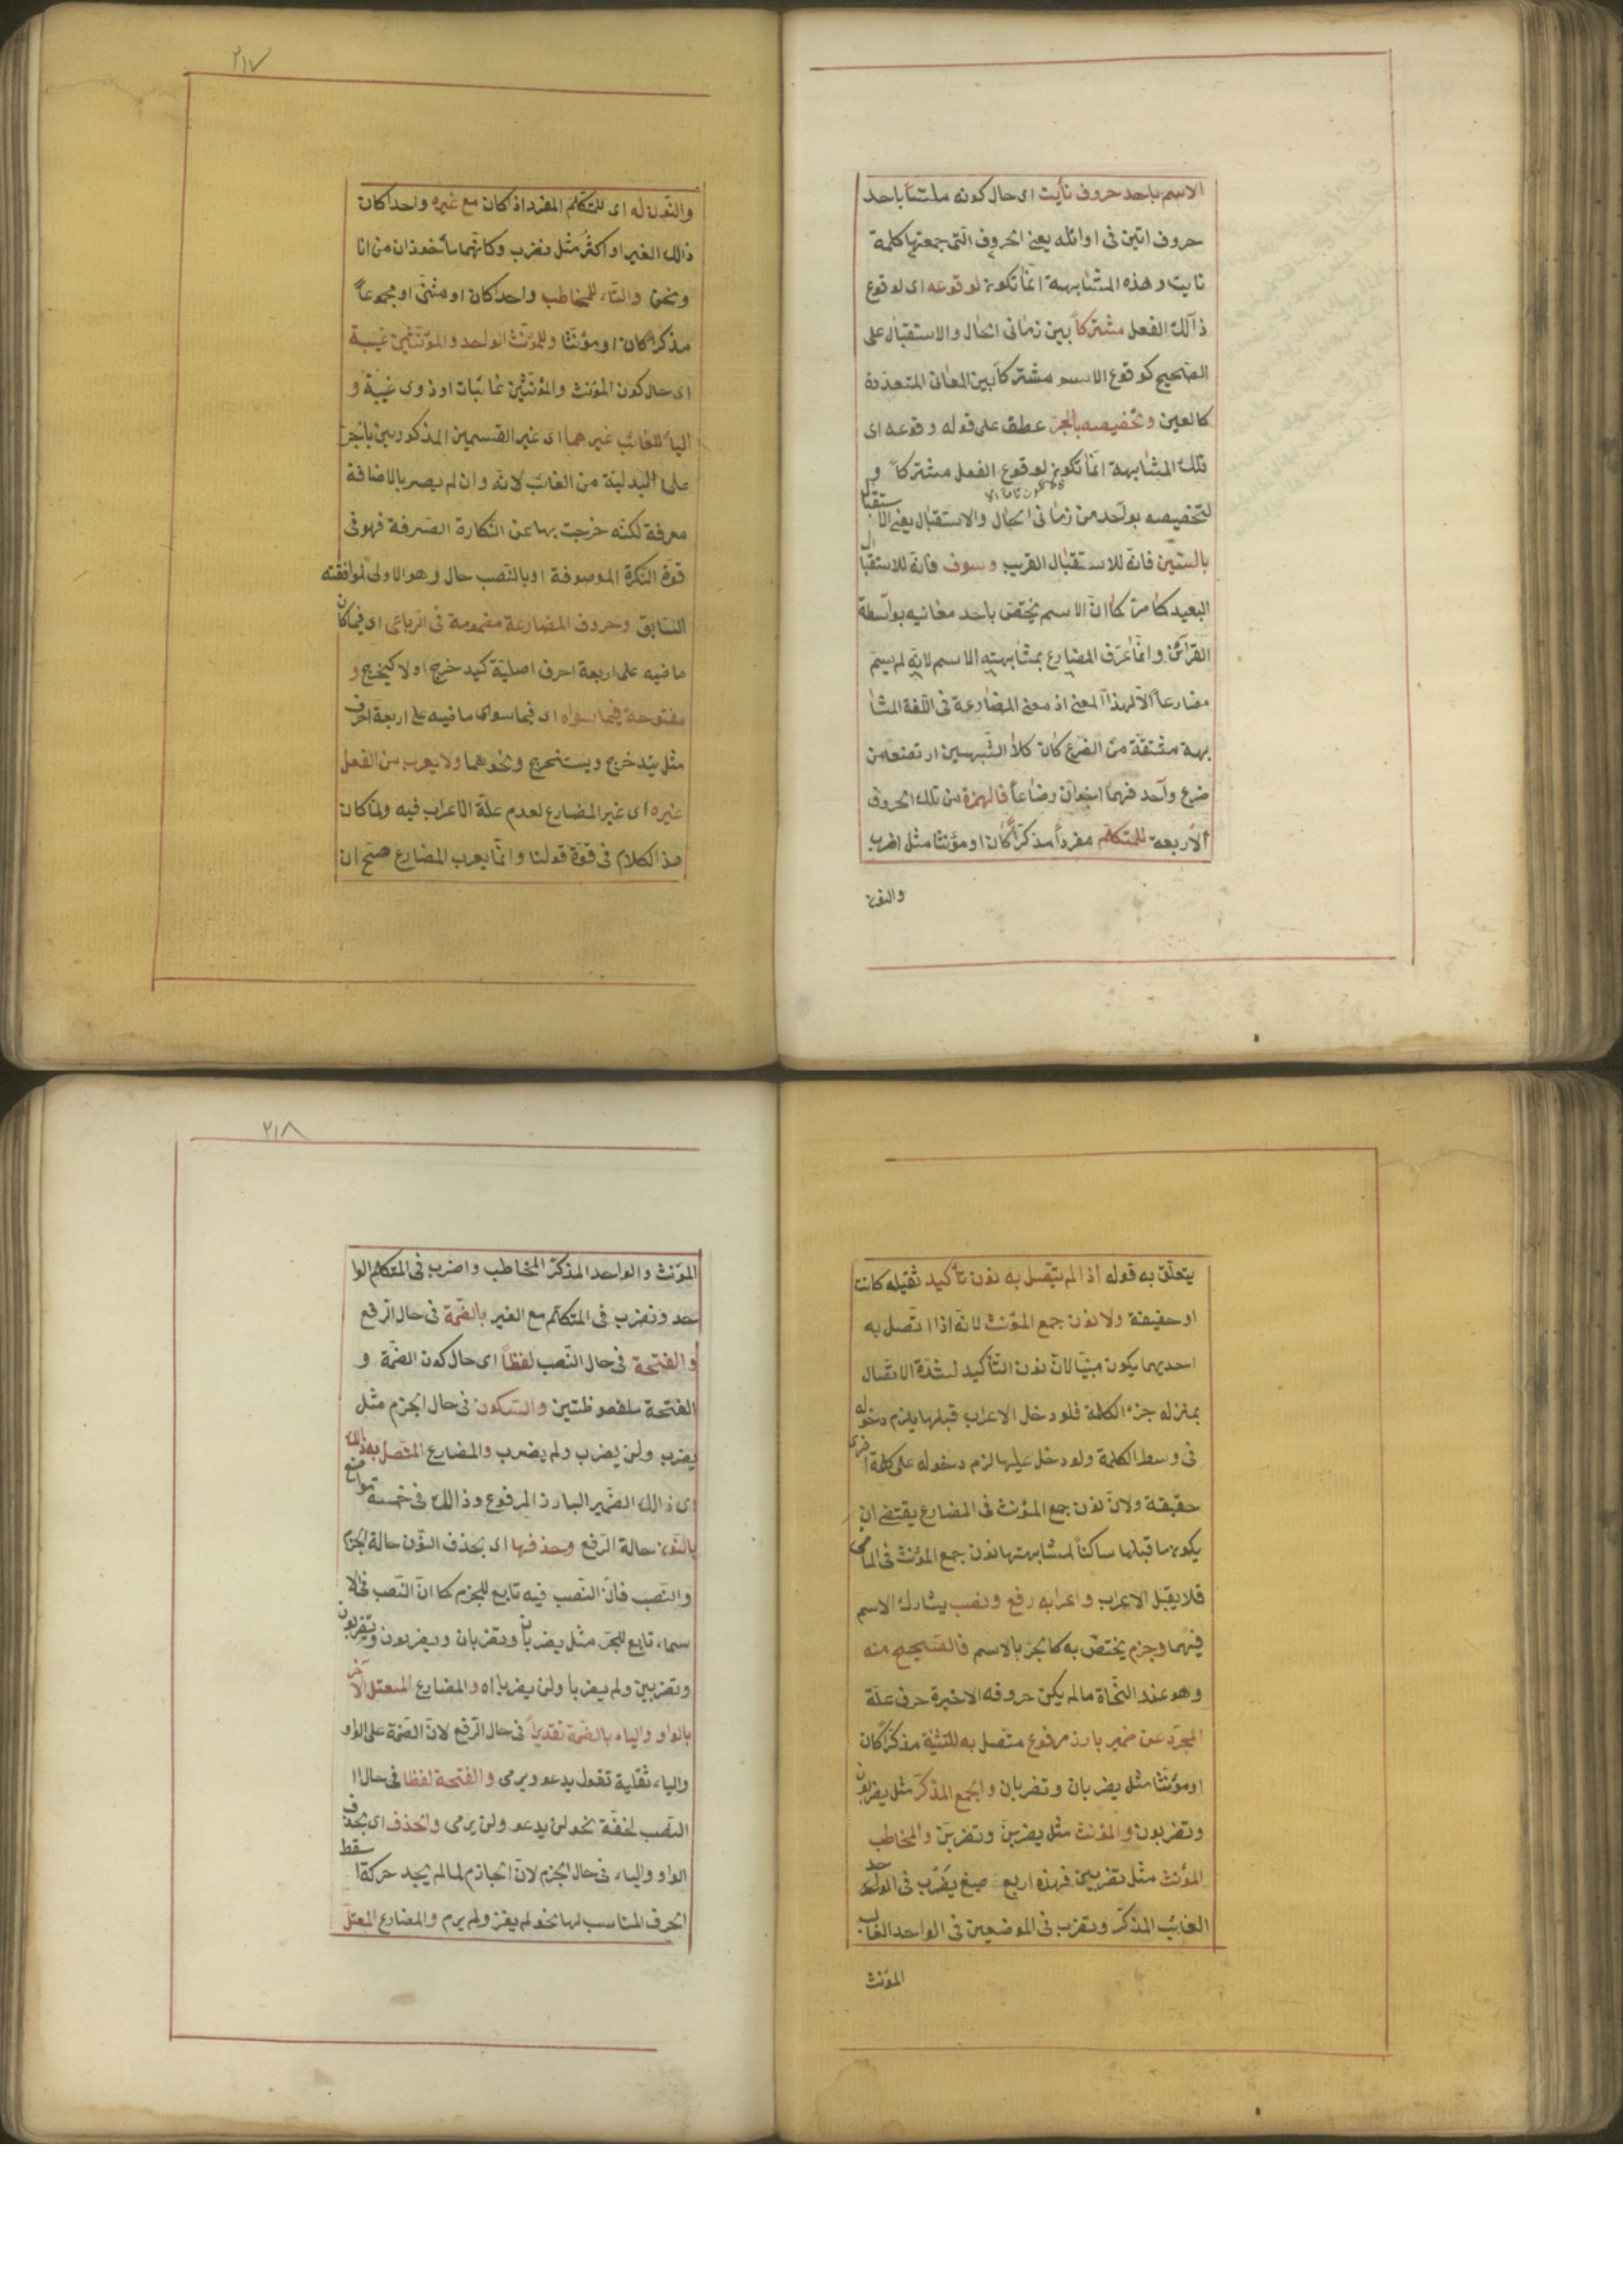 الاسم باحد حروف نأيت اى حال كونه ملتبسا باحد
حروف اتين فى اوائله يعنى الحروف التى جمعتها كلمة
نايت وهذه المشابهة انما تكون لوقوعه اى لوقوع
ذالك الفعل مشتركاً بين زمانى الحال والاستقبال على
الصحيح كوقوع الاسم مشتركاً بين المعانى المتعددة
كالعين وتخصيصه بالجر عطف على قوله وقوعه اى
تلك المشابهة انما تكون لوقوع الفعل مشتركاً و
لتخصيصه بواحد من زمانى الحال والاستقبال يعنى الاستقبال
بالسّين فانّه للاستقبال القريب وسوف فانّه للاستقبال
البعيد كما مرّ كما انّ الاسم يختصّ باحد معانيه بواسطة
القرآئن وانّما عرّف المضارع بمشابهته الاسم لانّه لم يسمّ
مضارعاً الّا لهذا المعنى اذ معنى المضارعة فى اللّغة المشا
بهة مشتقّة من الضرع كان كلا الشّبهين ارتضعا من
ضرع واحد فهما اخوان رضاعاً فالهمزة من تلك الحروف
الأربعة للمتكلّم مفرداً مذكّراً كان او مؤنثا مثل اضرب
والنون
٢١٧
والنّون له اى للمتكلم المفرد اذ كان مع غيره واحدا كان
ذالك الغير او اكثر مثل نضرب وكانّهما مأخوذان من انا
ونحن والتاء للمخاطب واحدا كان او مثنّى او مجموعاً
مذكرا كان او مؤنثا وللمؤنّث الواحد والمؤنّثين غيبة
اى حال كون المؤنث والمؤنّثين غائبات او ذوى غيبة و
الياء للغائب غيرهما اى غير القسمين المذكورين بالجرّ
على البدلية من الغائب لانّه وان لم يصر بالاضافة
معرفة لكنّه خرجت بها عن النّكارة الصّرفة فهو فى
قوّة النكرة الموصوفة او بالنّصب حال وهو الاولى لموافقته
السّابق وحروف المضارعة مضمومة فى الرّباعى اى فيما كان
ماضيه على اربعة احرف اصلية كيدخرج اولا كيخرج و
مفتوحة فيما سواه اى فيما سوى ماضيه على اربعة احرف
مثل يتدخرج ويستخرج ونحوهما ولا يعرب من الفعل
غيره اى غير المضارع لعدم علّة الاعراب فيه ولمّا كان
هذا الكلام فى قوّة قولنا وانّما يعرب المضارع صحّ ان
يتعلّق به قوله اذا لم يتّصل به نون تأكيد ثقيله كانت
او حفيفة ولا نون جمع المؤنّث لانّه اذا اتّصل به
احديهما يكون مبنيّا لانّ نون التّأكيد لشدّة الاتصال
بمنزله جزء الكلمة فلو دخل الاعراب قبلها يلزم دخوله
فى وسط الكلمة ولو دخل عليها لزم دخوله على كلمة اخرى
حقيقة ولانّ نون جمع المؤنث فى المضارع يقتضى ان
يكون ما قبلها ساكناً لمشابهتها نون جمع المؤنّث فى الماضى
فلا يقبل الاعراب واعرابه رفع ونصب يشارك الاسم
فيهما وجزم يختصّ به كالجرّ بالاسم فالصّحيح منه
وهو عند النّحاة ما لم يكن حروفه الاخيرة حرف علّة
المجرّد عن ضمير بارز مرفوع متّصل به للتثنية مذكّراً كان
او مؤنّثا مثل يضربان وتضربان والجمع المذكّر مثل يضربون
وتضربون والمؤنث مثل يضربن وتضربن والمخاطب
المؤنث مثل تضربين فهذه اربع صيغ يضرب فى الواحد
الغائب المذكر وتضرب فى الموضعين فى الواحد الغايب
المؤنث
٢١٨
المؤنث والواحد المذكر المخاطب واضرب فى المتكلم الوا
حد ونضرب فى المتكلم مع الغير بالضّمّة فى حال الرّفع
والفتحة فى حال النّصب لفظاً اى حال كون الضمّة و
الفتحة ملفوظتين والسّكون فى حال الجزم مثل
يضرب ولن يضرب ولم يضرب والمضارع المتّصل به ذالك
اى ذالك الضّمير البارز المرفوع وذالك فى خمسة مواضع
بالنّون حالة الرّفع وحذفها اى بحذف النّون حالة الجزم
والنّصب فانّ النّصب فيه تابع للجزم كما انّ النّصب فى الا
سماء تابع للجرّ مثل يضربان وتضربان ويضربون وتضربون
وتضربين ولم يضربا ولن يضربا اه والمضارع المعتل الآخر
بالواو والياء بالضّمّة تقديراً فى حال الرّفع لانّ الضّمة على الواو
والياء ثقلية تقول يدعو ويرمى والفتحة لفظا فى حال ا
النّصب لخفّة نحو لن يدعو ولن يرمى والحذف اى بحذف
الواو والياء فى حال الجزم لانّ الجازم لما لم يجد حركة اسقط
الحرف المناسب لها نحو لم يغز ولم يرم والمضارع المعتلّ